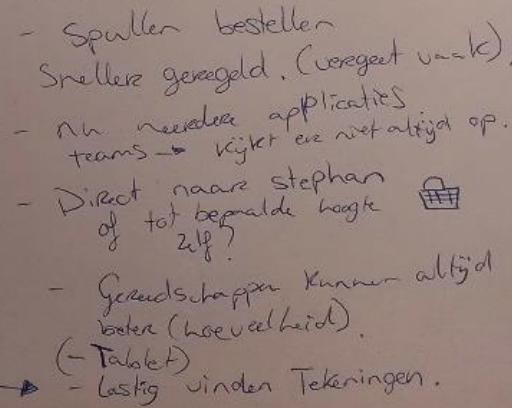 - Spullen bestellen
Sneller geregeld. (vergeet vaak)
- nu meerdere applicaties
teams → kijkt er niet altijd op.
- Direct naar stephan
of tot bepaalde hoogte
zelf?
- Gereedschappen kunnen altijd
beter (hoeveelheid).
(- Tablet)
→ - Lastig vinden Tekeningen.